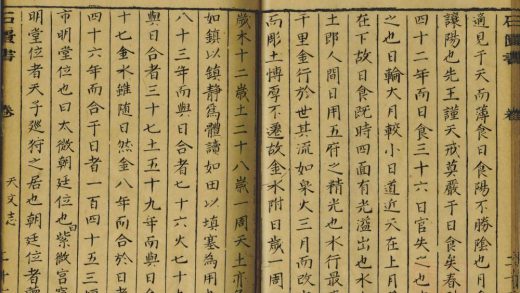 石匱書 卷
適見于天而薄食日食陽不勝陰也月食
讓陽也先王謹天戒莫嚴于日食矣春
四十二年而日食三十六日官失之也
之也日輪大月較小日道近天在上月
在下故日食旣時四面有光溢出也水
土即人間日用五府之精光也水行最
千里金行於世其流如泉火三月而改
而彫土愽厚不遷故金水附日歲一周
歲木十二歲土二十八歲一周天土亦
如鎮以鎮靜為體讀如田以填塞為用
八十三年而與日合者七十六火七十
與日合者三十七土五十九年而與日
十七金水雖随日然金八年而合於日
四十六年而合于日者一百四十五三垣
市明堂位也曰太微朝廷位也曰紫微宮
明堂位者天子廵狩之居也朝廷位者
石匱書 卷 天文志